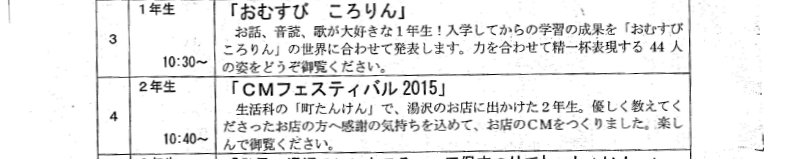 1年生
「おむすび　ころりん」
3
お話、音読、歌が大好きな1年生！入学してからの学習の成果を「おむすび
ころりん」の世界に合わせて発表します。力を合わせて精一杯表現する 44 人
10:30～
の姿をどうぞ御覧ください。
2年生
「CMフェスティバル 2015」
4
生活科の「町たんけん」で、湯沢のお店に出かけた2年生。優しく教えてく
ださったお店の方へ感謝の気持ちを込めて、お店のCMをつくりました。楽し
10:40～
んで御覧ください。